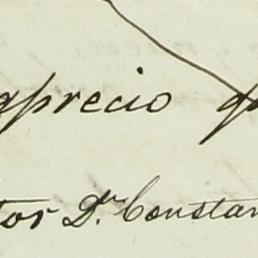 aprecio
tor Dr. Constan